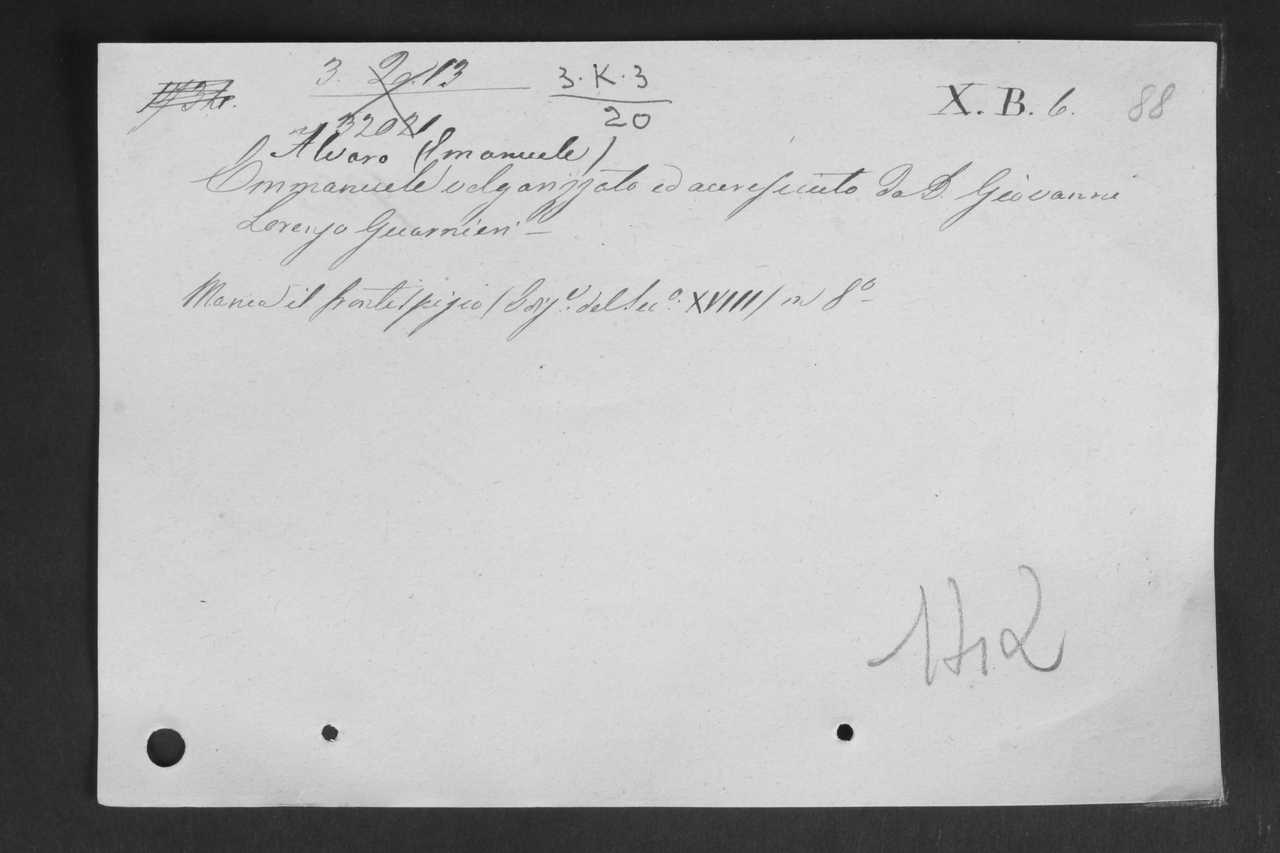 3. 2g.13
3.K.3
20
X. B. 6.
88
3202
Alvaro (Emanuele)
Emmanuele volgarizzato ed accresciuto da D. Giovanni
Lorenzo Guarnieri —
Manca il frontispizio (Ediz.e del Sec.o XVIII) in 8o